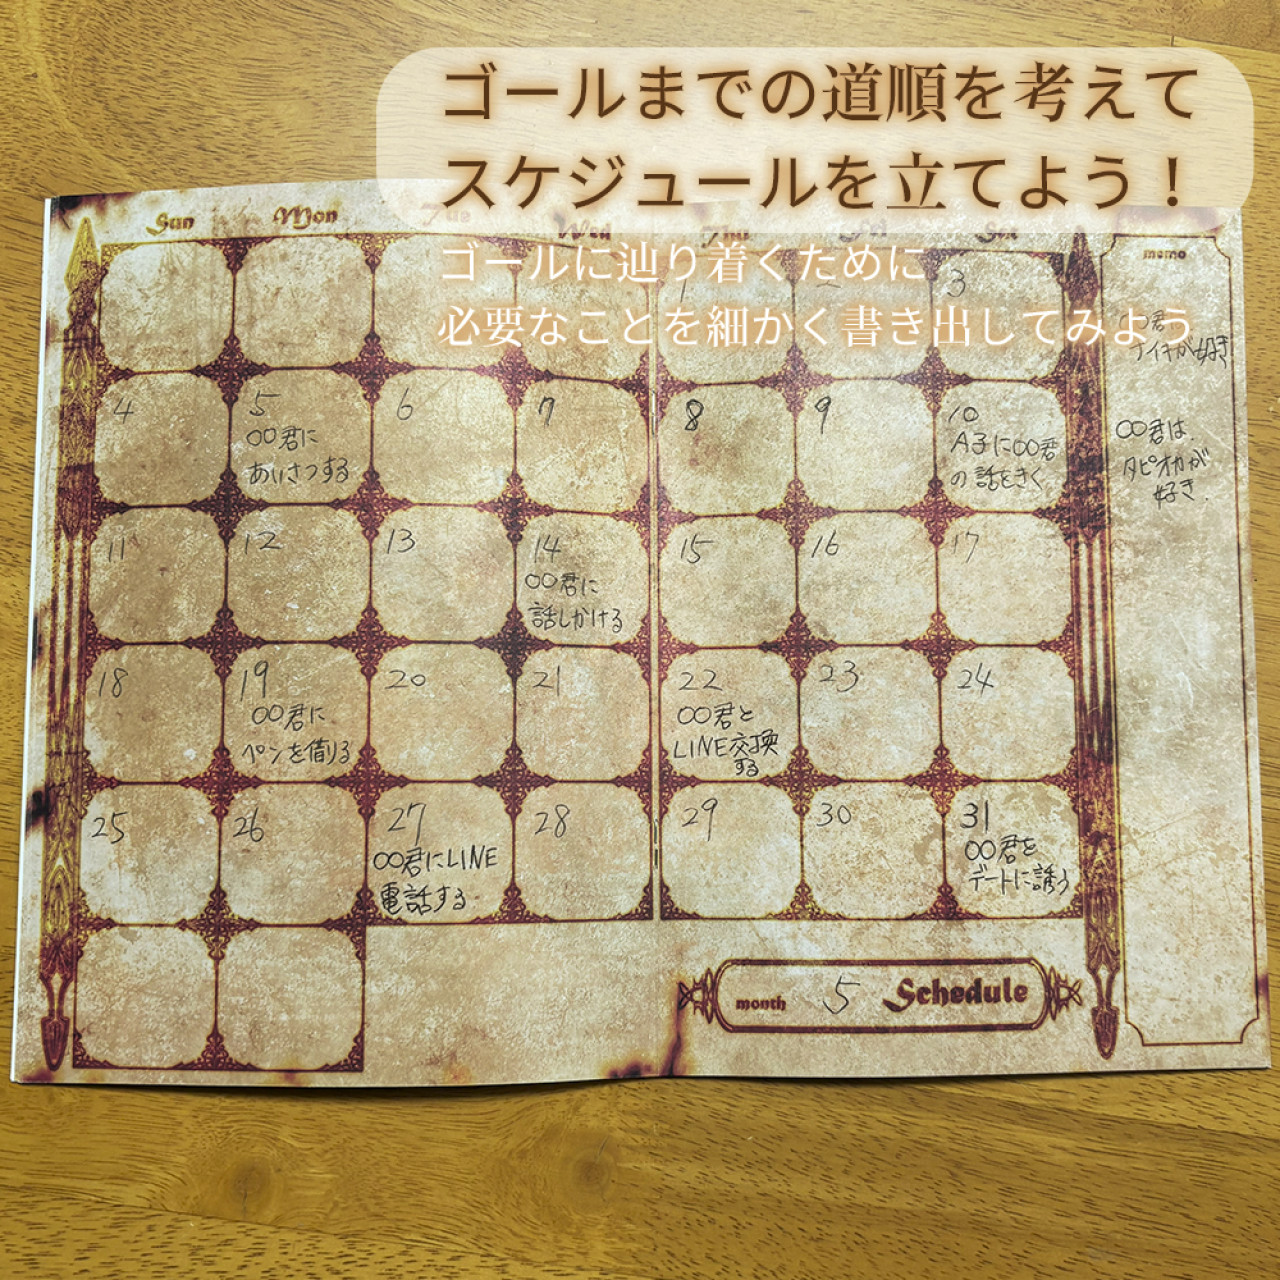 ゴールまでの道順を考えて
スケジュールを立てよう！
ゴールに辿り着くために
必要なことを細かく書き出してみよう
Sun Mon Tue Wed Thu Fri Sat
memo
1 2 3
ナイキが好き
4 5 6 7 8 9 10
〇〇君に
あいさつする
A子に〇〇君
の話をきく
〇〇君は
タピオカが
好き.
11 12 13 14 15 16 17
〇〇君に
話しかける
18 19 20 21 22 23 24
〇〇君に
ペンを借りる
〇〇君と
LINE交換
する
25 26 27 28 29 30 31
〇〇君にLINE
電話する
〇〇君を
デートに誘う
month 5 Schedule